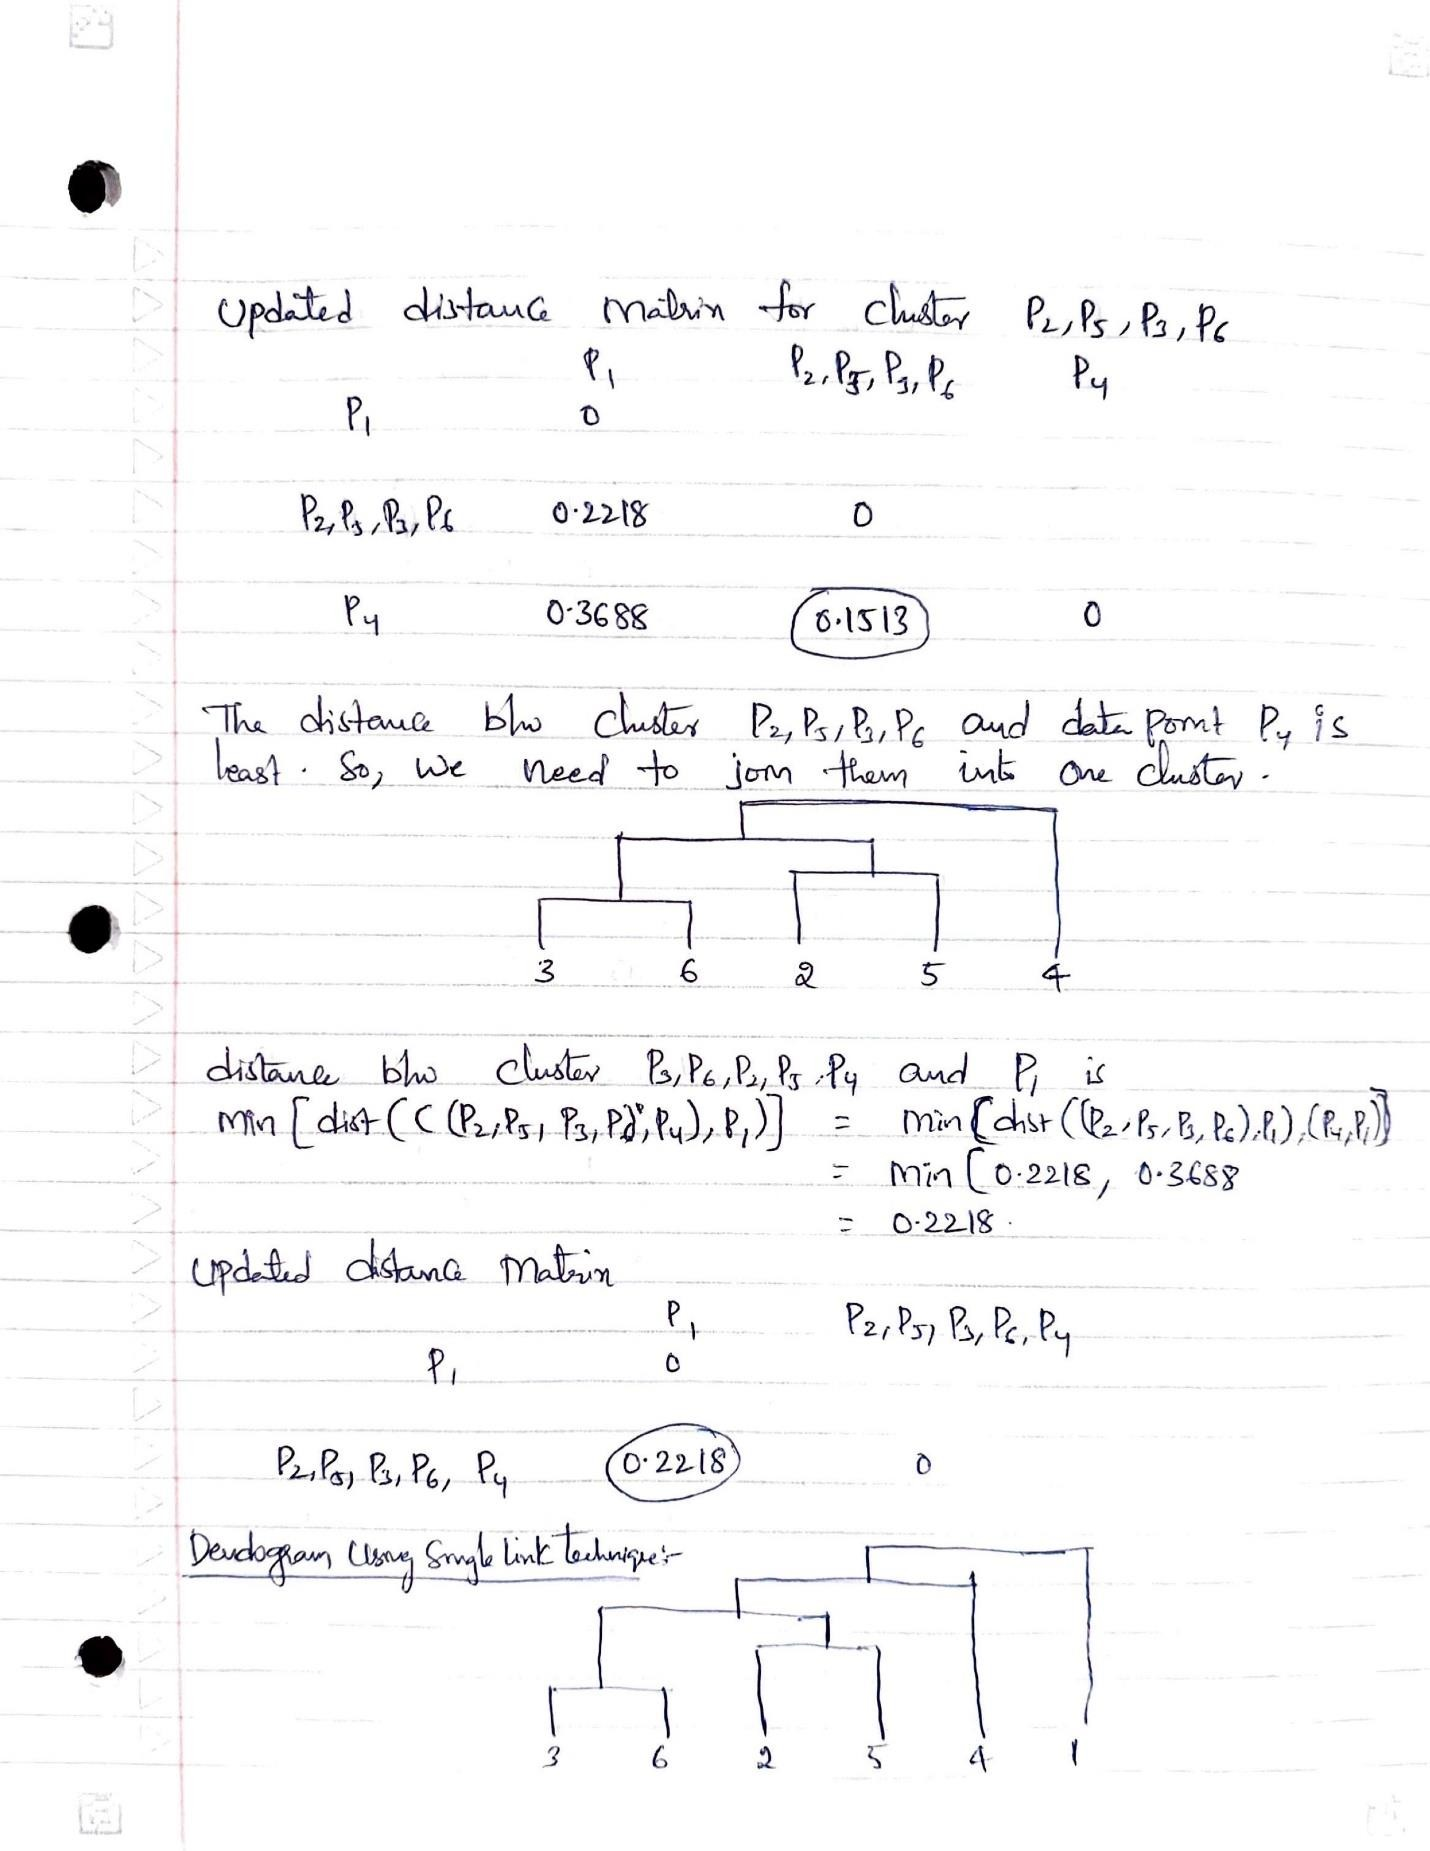 Updated distance Matrix for cluster P2, P5, P3, P6
P1 P2, P5, P3, P6 P4
P1 0
P2, P5, P3, P6 0.2218 0
P4 0.3688 0.1513 0
The distance b/w cluster P2, P5, P3, P6 and data point P4 is
least. So, we need to join them into one cluster.
3 6 2 5 4
distance b/w cluster P3, P6, P2, P5, P4 and P1 is
min [dist (( (P2, P5, P3, P6), P4), P1)] = min [dist ((P2, P5, P3, P6), P1), (P4, P1)]
= min [0.2218, 0.3688
= 0.2218.
Updated distance Matrix
P1 P2, P5, P3, P6, P4
P1 0
P2, P5, P3, P6, P4 0.2218 0
Dendogram Using Single link technique:-
3 6 2 5 4 1